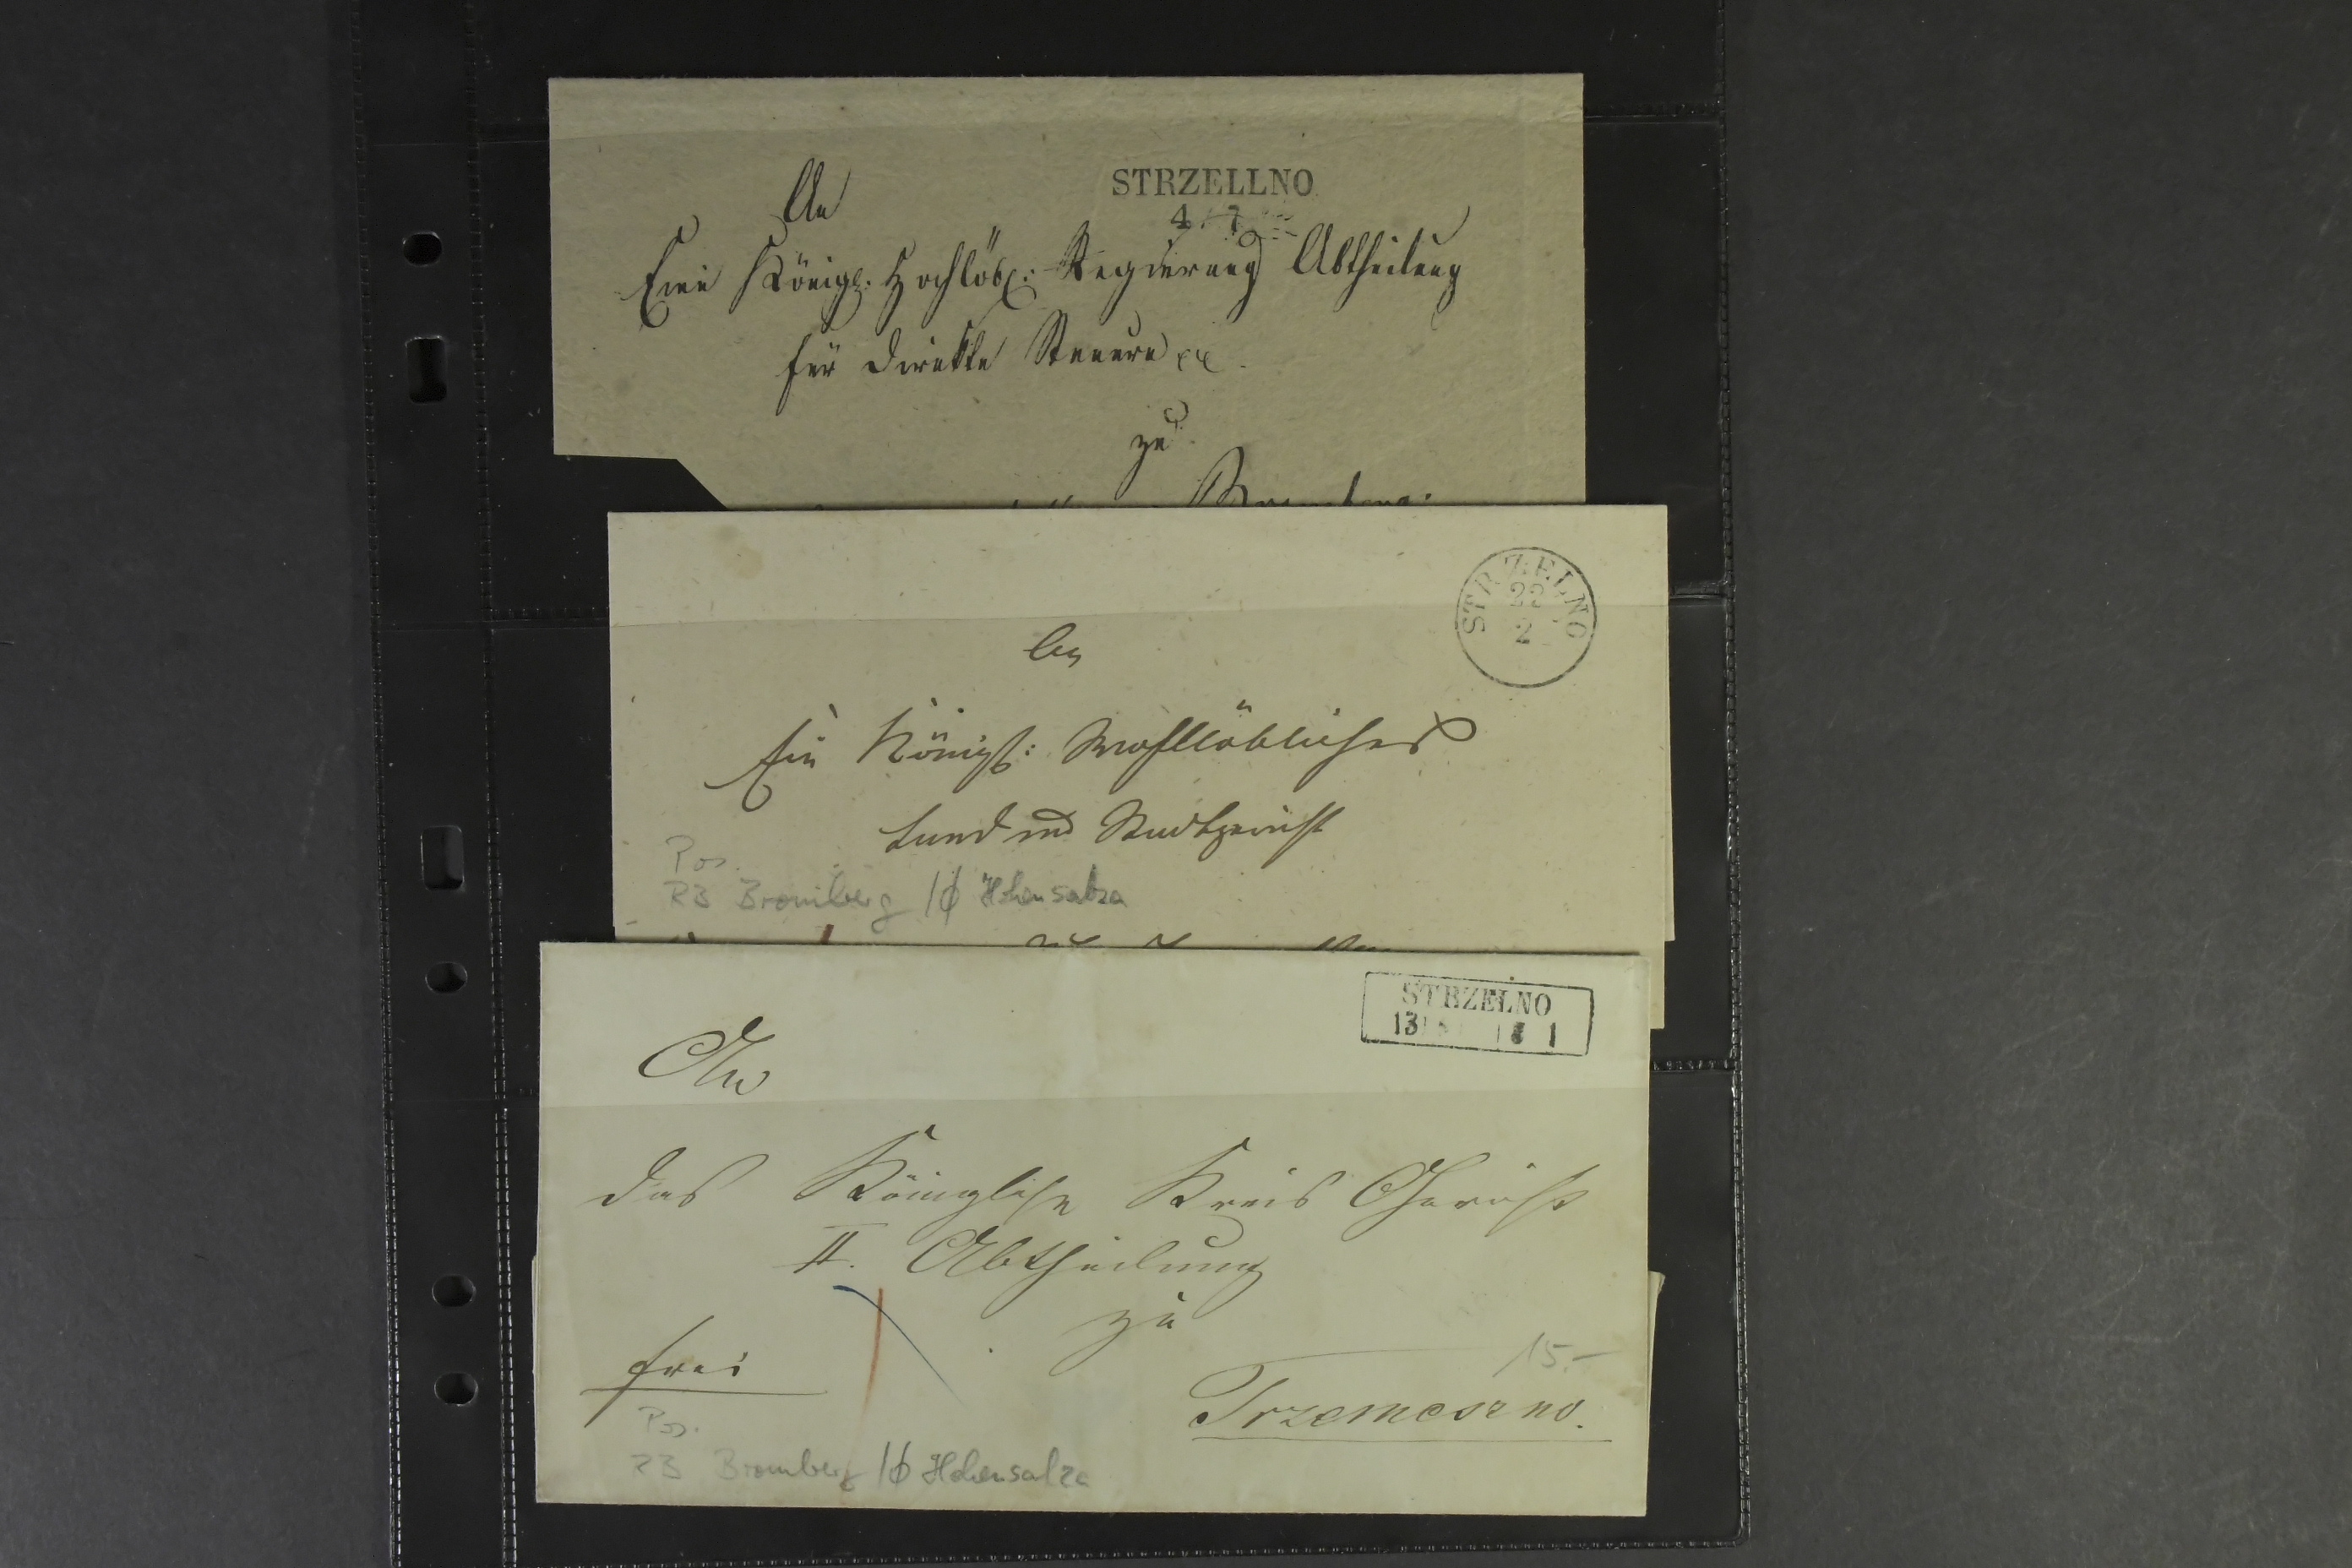 STRZELLNO
4/7
An
Eine Königl: Hochlöbl: Regierung Abtheilung
für direkte Steuern
zu
Bromberg.
STRZELNO
22
2
An
Ein Königl: Wohllöbliches
Land und Stadtgericht
Pos.
RB Bromberg /6 Hohensalza
STRZELNO
13
1
An
das Königliche Kreis Gericht
II. Abtheilung
zu
frei
15.-
Trzemeszno.
Pos.
RB Bromberg /6 Hohensalza